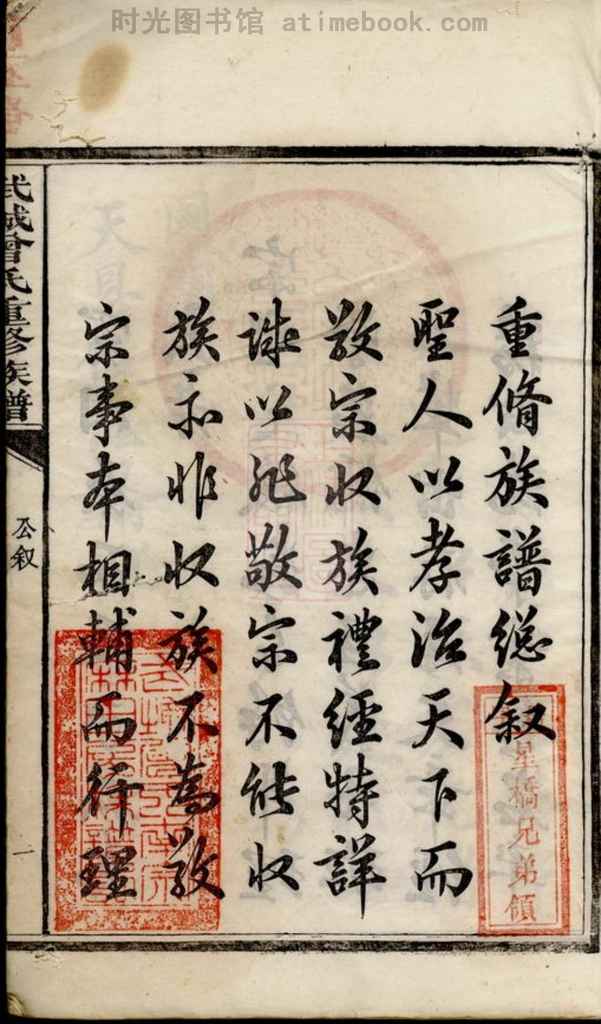 时光图书馆 atimebook.com
重脩族譜總叙
聖人以孝治天下而
敬宗收族禮經特詳
誠以非敬宗不能收
族亦非收族不為敬
宗事本相輔而行理
星橋兄弟領
武城曾氏重修族譜
公叙
一